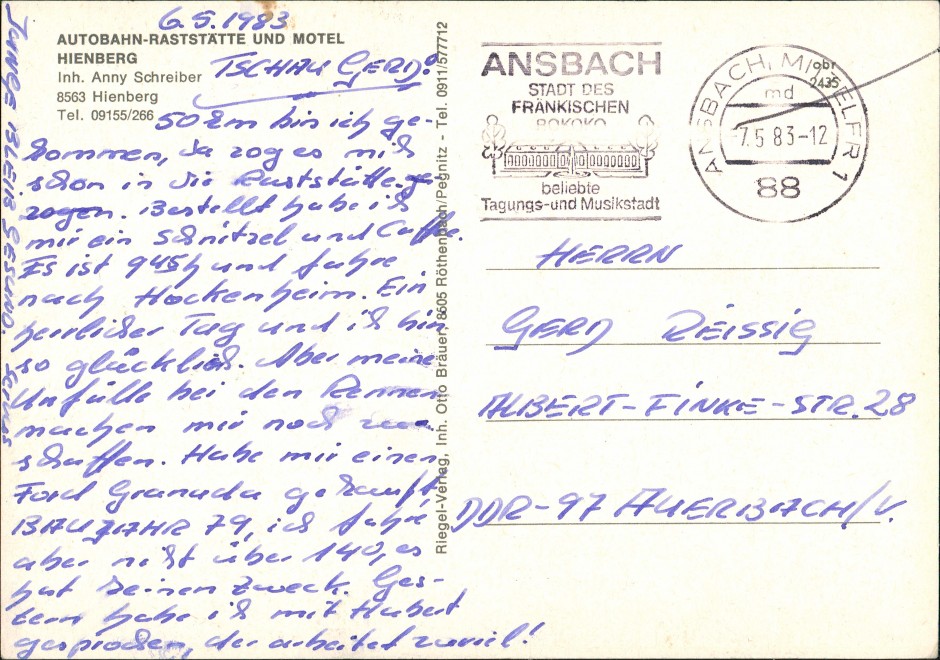 6.5.1983
AUTOBAHN-RASTSTÄTTE UND MOTEL
HIENBERG
Inh. Anny Schreiber
8563 Hienberg
Tel. 09155/266
TSCHAU GERD!
50 km bin ich ge-
kommen, da zog es mich
schon in die Raststätte ge-
zogen. Bestellt habe ich
mir ein Schnitzel und Caffee.
Es ist 945h und fahre
nach Hockenheim. Ein
herrlicher Tag und ich bin
so glücklich. Aber meine
Unfälle bei den Rennen
machen mir noch zu
schaffen. Habe mir einen
Ford Granada gekauft
BAUJAHR 79, ich fahre
aber nicht über 140, es
hat keinen Zweck. Ges-
tern habe ich mit Hubert
gesprochen, der arbeitet zuviel!
JUNGE BLEIB GESUND Servus
Riegel-Verlag, Inh. Otto Bräuer, 8605 Röthenbach/Pegnitz - Tel. 0911/577712
ANSBACH
STADT DES
FRÄNKISCHEN
ROKOKO
beliebte
Tagungs-und Musikstadt
ANSBACH, MITTELFR 1
md
-7.5 83-12
88
HERRN
GERD REISSIG
ALBERT-FINKE-STR. 28
DDR-97 AUERBACH/V.